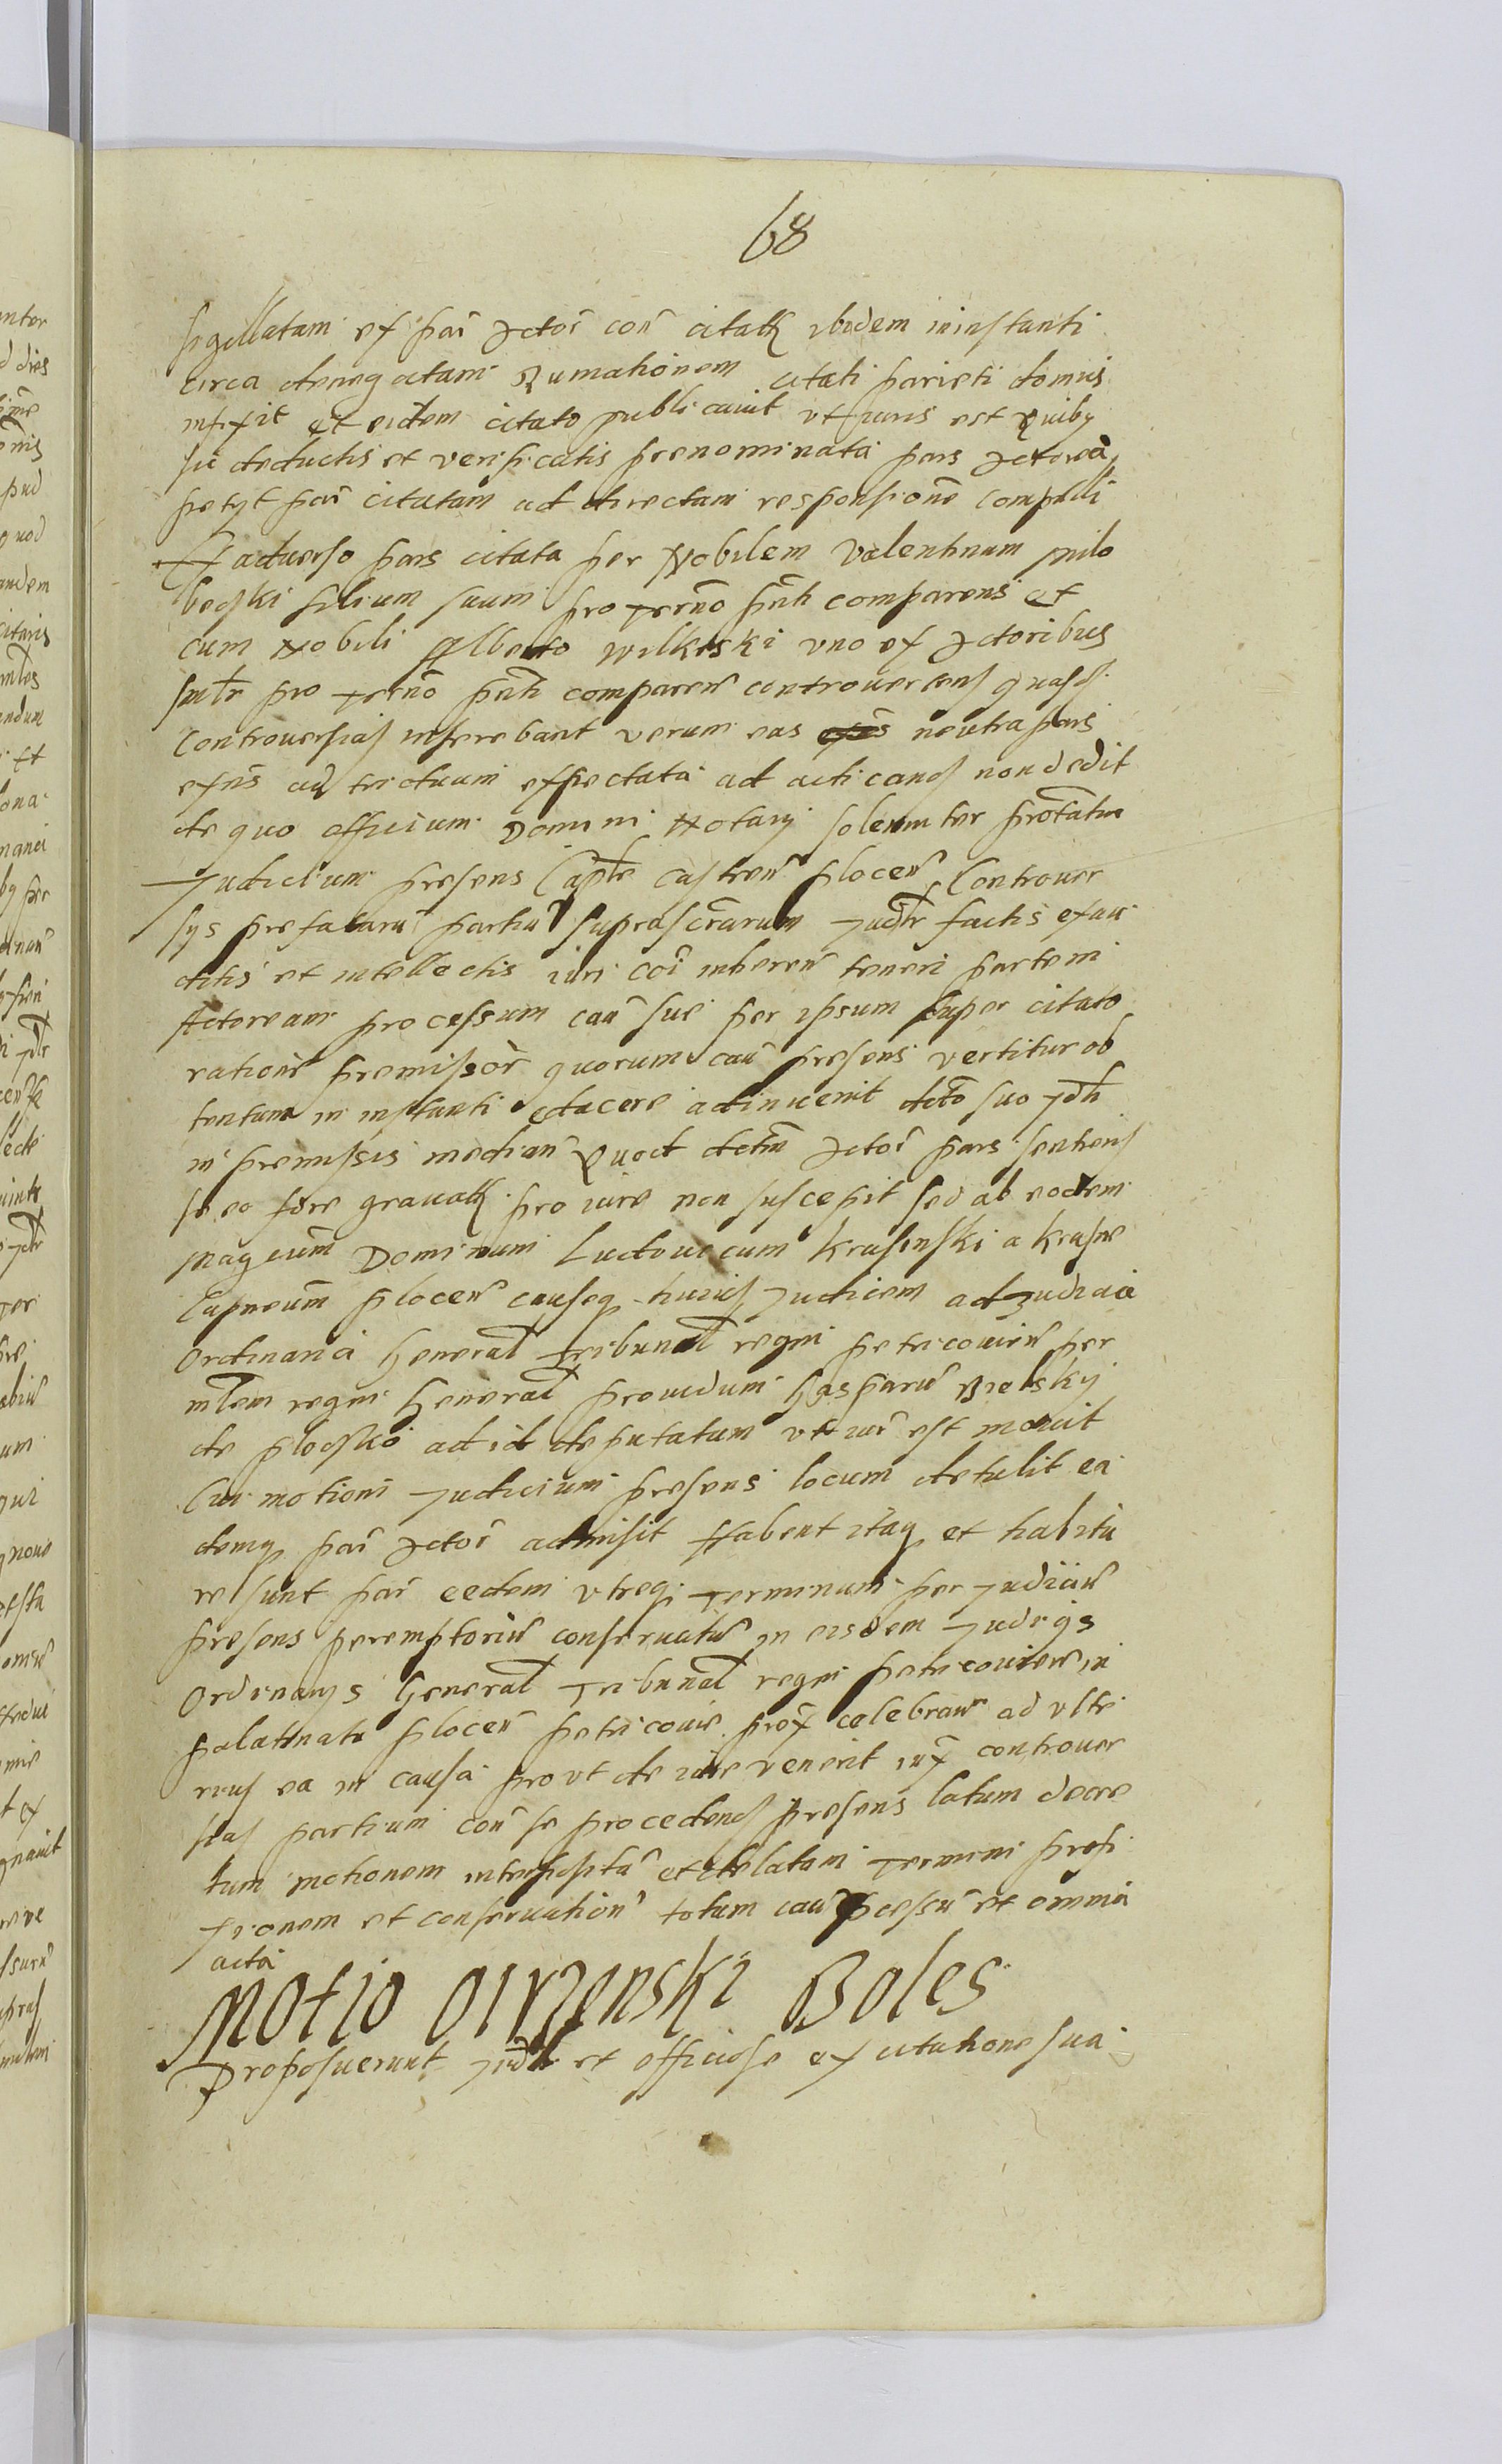 68
sigillatam ex par Actor con citatū ibidem in instanti
circa denegatam Rumationem citati parieti domus
infixit et eidem citato publicauit vt iuris est Quibus
sic deductis et verificatis prenominata pars Actorea
petyt par citatam ad directam responsionē compelli
Ex aduerso pars citata per Nobilem Valentinum milo
bedski filium suum pro termō pnti comparens et
cum Nobili Alberto Wilkoski vno ex Actoribus
pro termō pnti comparen controuerten quasd
Controuersias inferebant verum eas neutra pars
ex ad acticand non dedit
de quo officium Domini Notarij solenniter
Judicium presens Caple castren plocen Controuer
sys prefataru partiu suprascrarum Judlr factis exau
ditis et intellectis iuri coi inheren teneri partem
Actoream processum cau sue per ipsum super citato
ratione premissor quorum cau presens vertitur ob
tentum in instanti edocere adinuenit dcto suo Jdli
in premissis median Quod dctm Actor pars sentiens
se eo fore grauatū pro iure non suscepit sed ab eodem
magcum Dominum Ludouicum Krasinski a Krasne
Capneum plocen causeq huius Judicem ad Judicia
Ordinaria General Tribunal regni petricouien per
mlem regni General prouidum Gasparu Bielskij
de plocsko ad id deputatum vt iur est mouit
Cui motioni Judicium presens locum detulit ea
demq par Actor admisit Habent itaq et habitu
re sunt par eedem vtreq Terminum per Judiciu
presens peremptoriu conseruatu in eisdem Judicijs
Ordinarijs General Tribunal regni petricouien in
palatinatu plocen petricouie prox celebran ad vlte
rius ea in causa prout de iure venerit iux controuer
sias partium con se procedend presens latum decre
tum motionem interposita et delatam Termini prefi
xionem et conseruation totum cau pcessu et omnia
acta
Motio Boles
Proposuerunt Judlr et officiose ex citatione sua